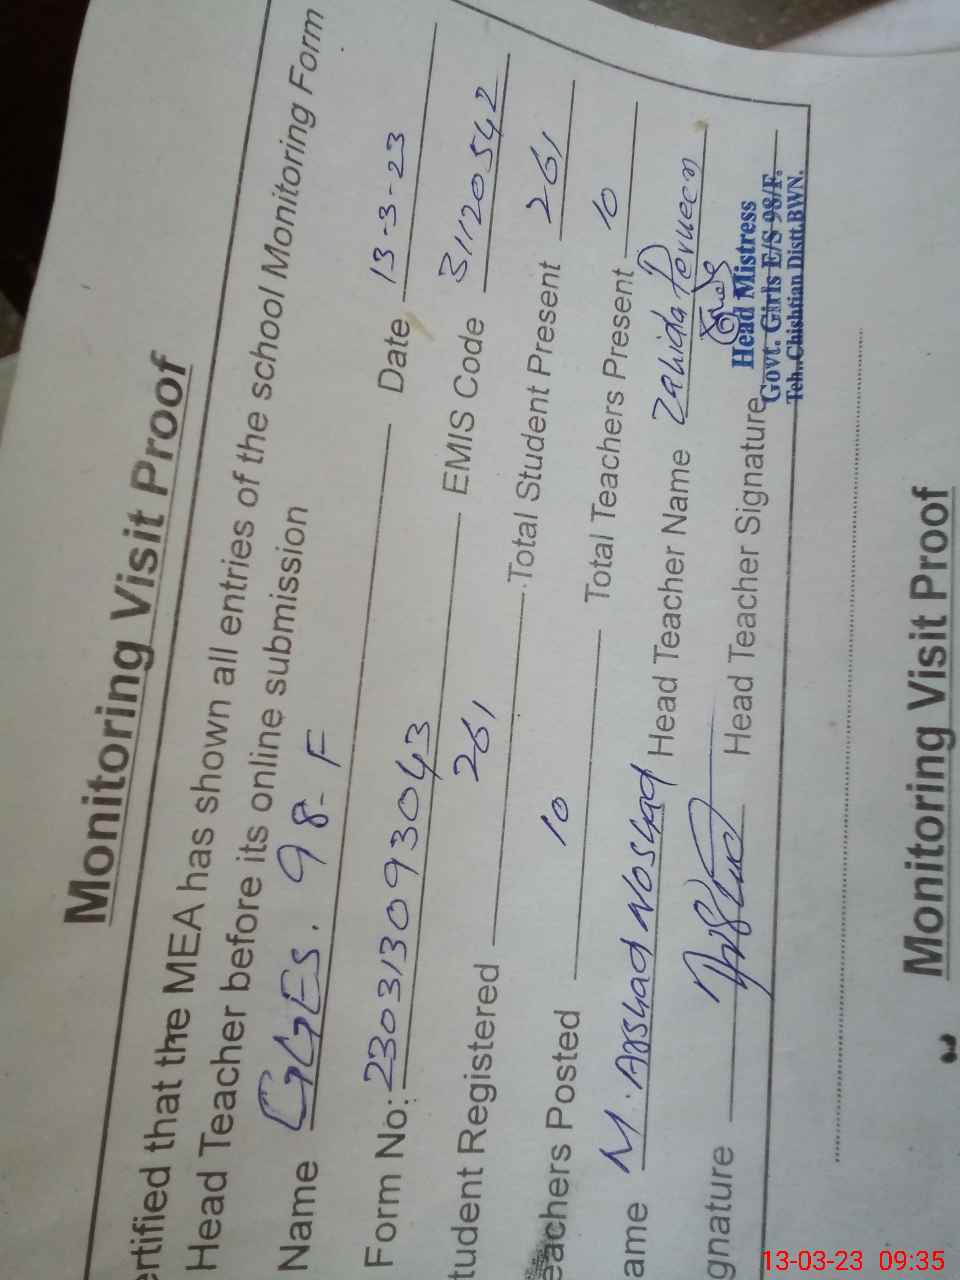 Monitoring Visit Proof
ertified that the MEA has shown all entries of the school Monitoring Form
Head Teacher before its online submission
Name GGES. 98-F
Form No: 230313093043 Date 13-3-23
tudent Registered 261 EMIS Code 31120542
eachers Posted 10 Total Student Present 261
Total Teachers Present 10
ame M. Arshad Noshad Head Teacher Name Zahida Perveen
gnature Head Teacher Signature
Head Mistress
Govt. Girls E/S 98/F.
Teh. Chishtian Distt.BWN.
Monitoring Visit Proof
13-03-23 09:35